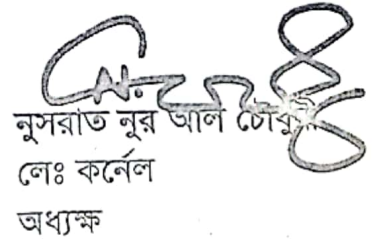 নুসরাত নুর আল চৌধুরী
লেঃ কর্নেল
অধ্যক্ষ